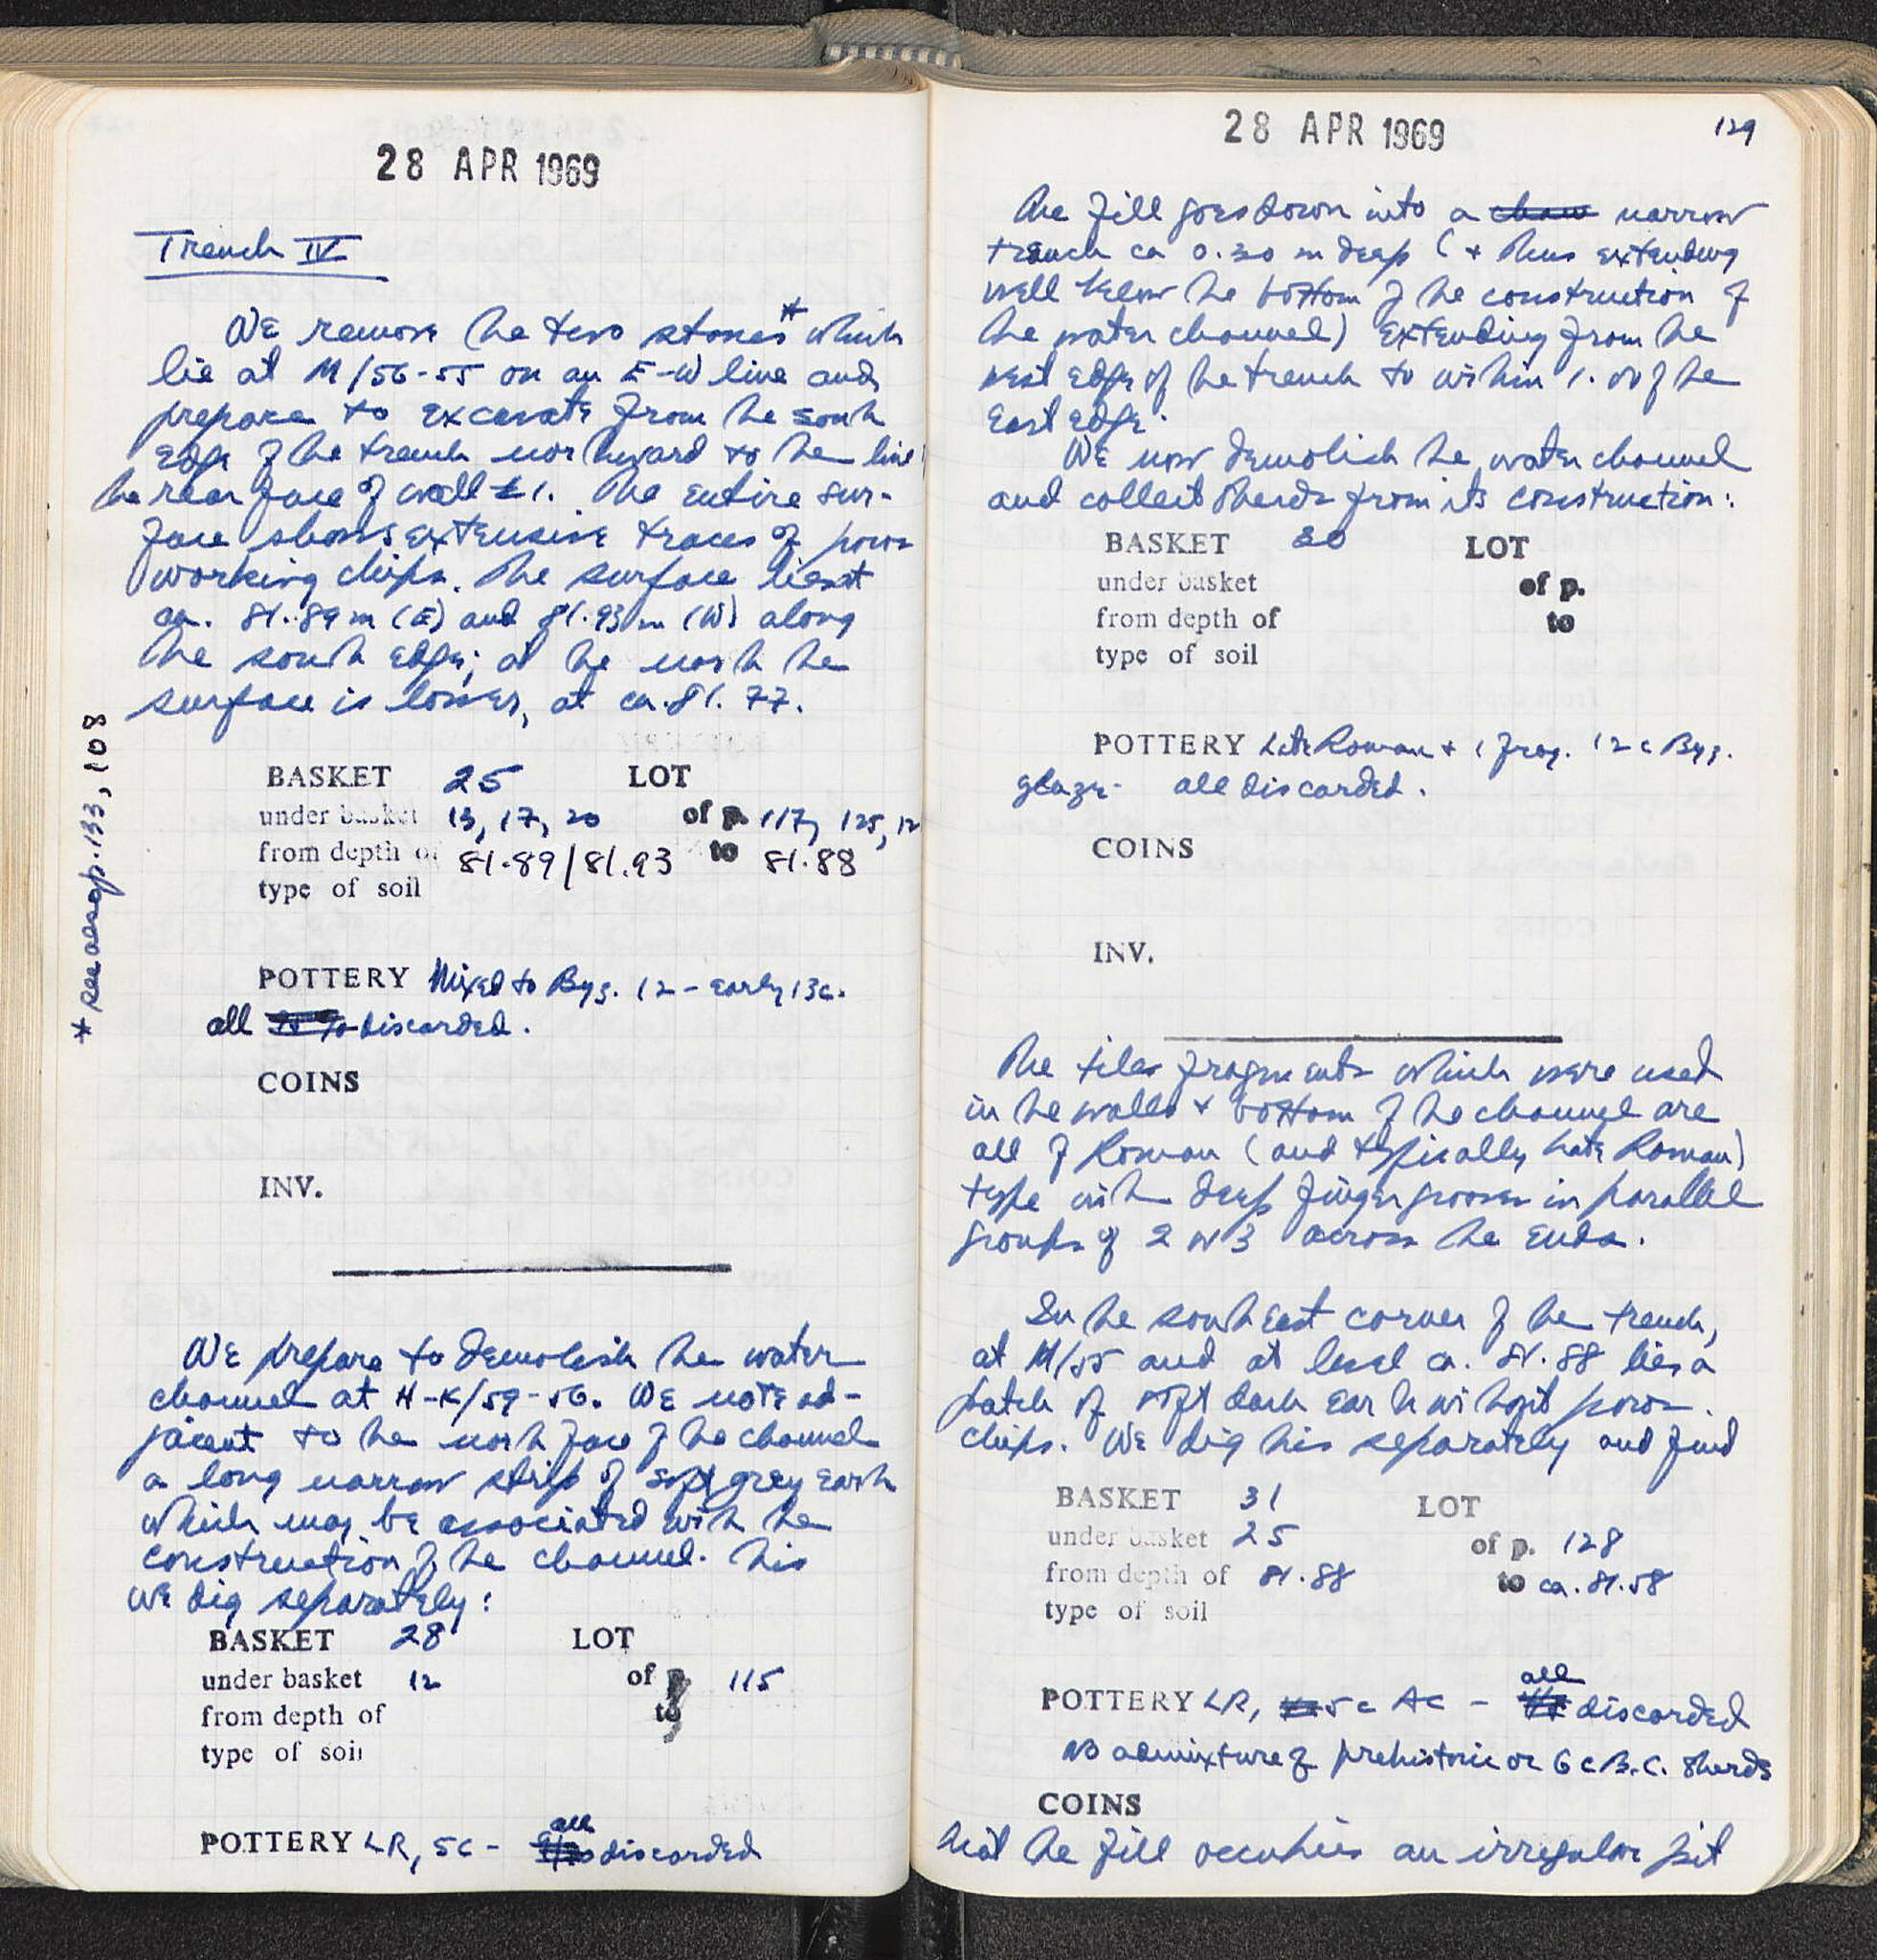 28 APR 1969
Trench IV
We remove the two stones* which
lie at M/56-55 on an E-W line and
prepare to excavate from the south
edge of the trench northward to the line
the rear face of wall 1. The entire sur-
face shows extensive traces of poros
working chips. The surface lies at
ca. 81.89 m (E) and 81.93 m (W) along
the south edge; at the north the
surface is lower, at ca. 81.77.
* see also p. 133, 108
BASKET 25 LOT
under basket 13, 17, 20 of p. 117, 125, 12
from depth of 81.89/81.93 to 81.88
type of soil
POTTERY Mixed to Byz. 12 - early 13c.
all discarded.
COINS
INV.
We prepare to demolish the water
channel at H-K/59-56. We note ad-
jacent to the north face of the channel
a long narrow strip of soft grey earth
which may be associated with the
construction of the channel. This
we dig separately:
BASKET 28 LOT
under basket 12 of p. 115
from depth of to
type of soil
POTTERY LR, 5c - all discarded
28 APR 1969
129
The fill goes down into a narrow
trench ca 0.30 m deep (+ thus extending
well below the bottom of the construction of
the water channel) extending from the
west edge of the trench to within 1.00 of the
East edge.
We now demolish the water channel
and collect sherds from its construction:
BASKET 30 LOT
under basket of p.
from depth of to
type of soil
POTTERY Late Roman + 1 frag. 12 c Byz.
glaze - all discarded.
COINS
INV.
The tiles fragments which were used
in the walls + bottom of the channel are
all of Roman (and typically Late Roman)
type with deep finger grooves in parallel
groups of 2 or 3 across the ends.
In the southeast corner of the trench,
at M/55 and at level ca. 81.88 lies a
patch of soft dark earth without poros
chips. We dig this separately and find
BASKET 31 LOT
under basket 25 of p. 128
from depth of 81.88 to ca. 81.58
type of soil
POTTERY LR, 5c AC - all discarded
NB admixture of prehistoric or 6 c B.C. sherds
COINS
that the fill occupies an irregular pit